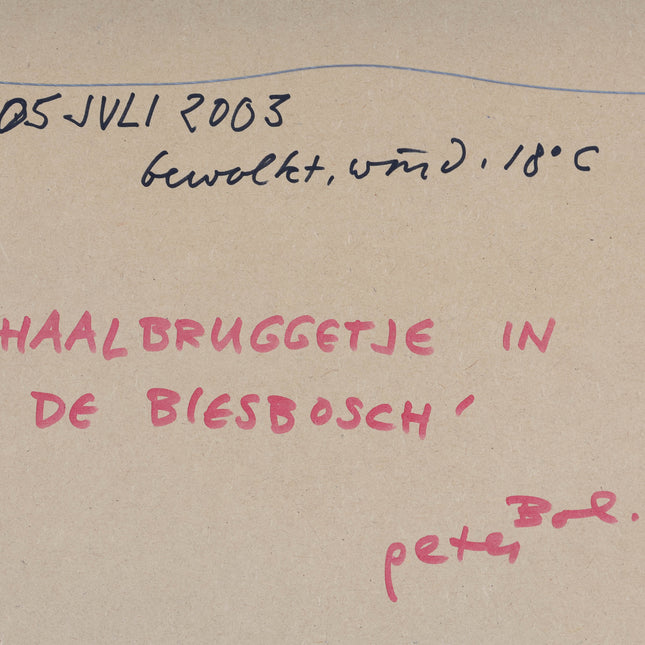 05 JULI 2003
bewolkt, wind. 18°C
HAALBRUGGETJE IN
DE BIESBOSCH'
peter Bol.